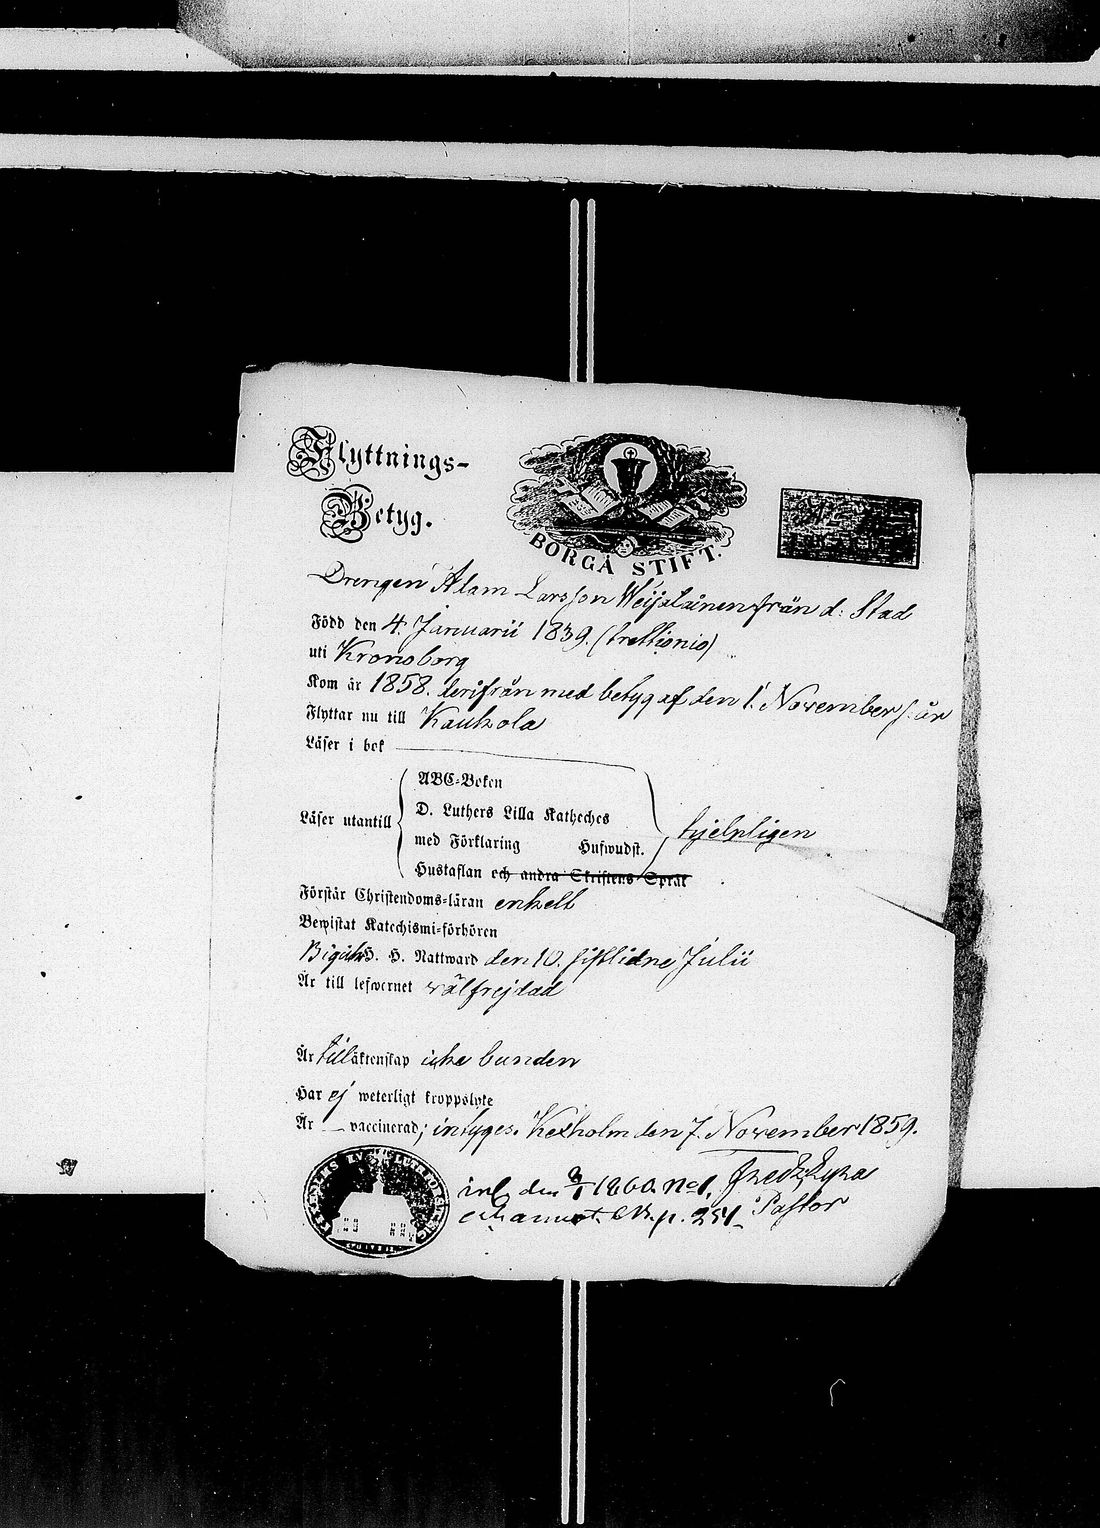 Flyttnings-
Betyg.
BORGÅ STIFT.
Drengen Adam Larsson Weijalainen från d: Stad
Född den 4. Januarii 1839. (trettionio)
uti Kronoborg
Kom år 1858. derifrån med betyg af den 1. November s. år
Flyttar nu till Kaukola
Läser i bok
ABC-Boken
D. Luthers Lilla Katheches
Läser utantill
med Förklaring Hufwudst.
hjelpligen
Hustaflan och andra Skriftens Språk
Förstår Christendoms-läran enkelt
Bewistat Katechismi-förhören
Bigått H. H. Nattward den 10. sistlidne Julii
Är till lefwernet wälfrejdad
Är till äktenskap icke bunden
Har ej weterligt kroppslyte
Är vaccinerad; intygas. Kexholm den 7. November 1859.
inl. den 3/1 1860. No 1.
Pastor
p. 251